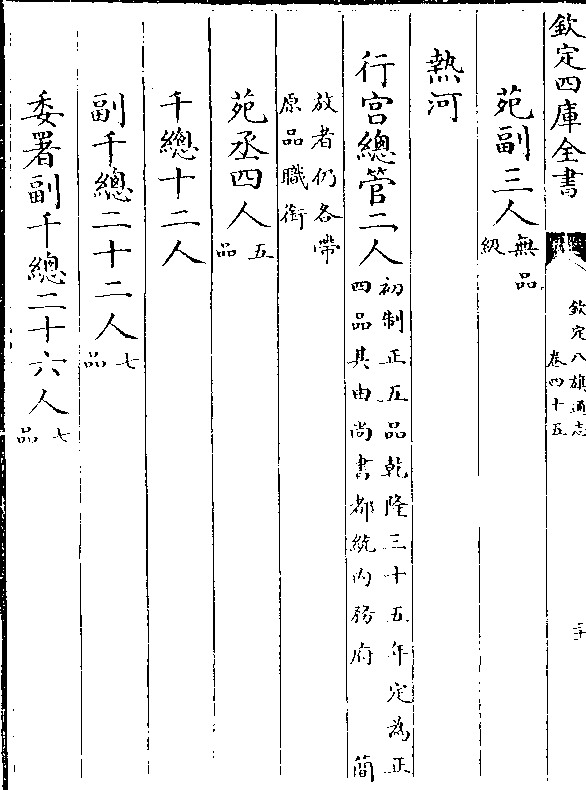 欽定四庫全書
欽定八旗通志
卷四十五
苑副三人無品
級
熱河
行宮總管二人初制正五品乾隆三十五年定為正
四品其由尚書都統內務府 簡
放者仍各帶
原品職銜
苑丞四人五
品
千總十二人
副千總二十二人七
品
委署副千總二十六人七
品